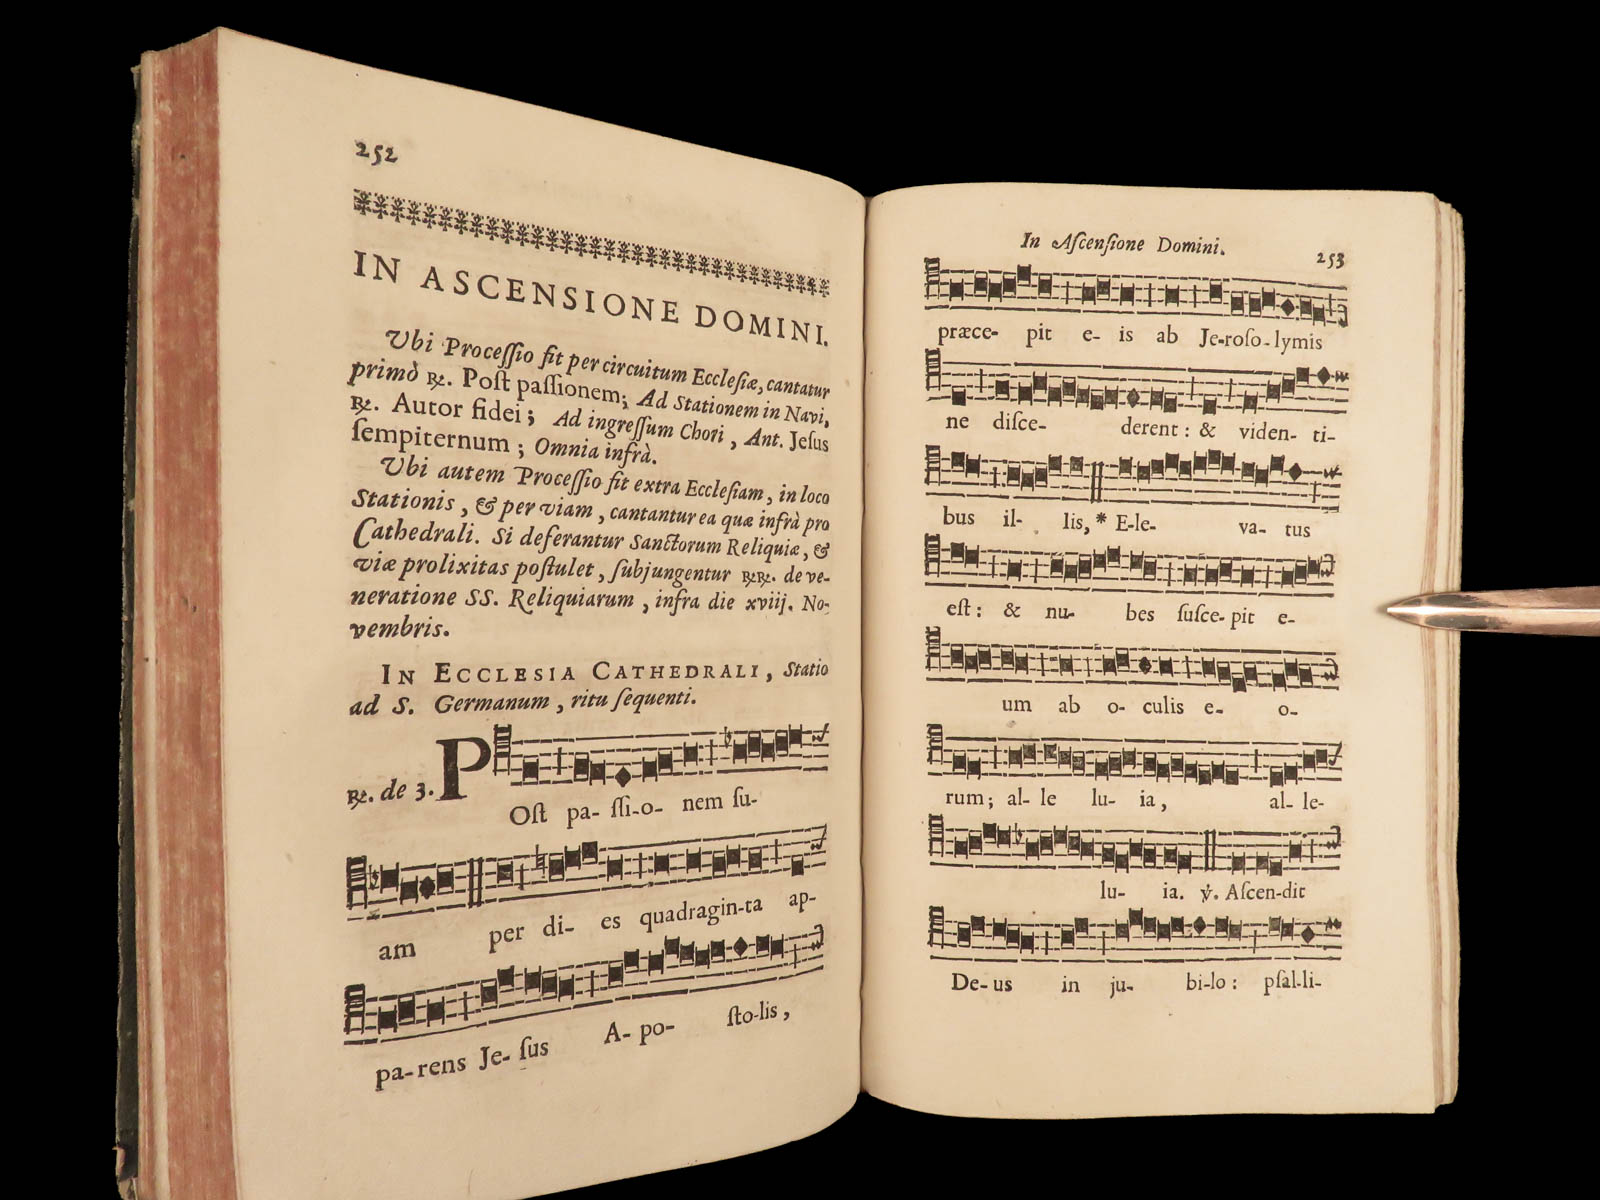 252
IN ASCENSIONE DOMINI.
Ubi Proceſſio fit per circuitum Eccleſiæ, cantatur
primò ℟. Poſt paſſionem; Ad Stationem in Navi,
℟. Autor fidei; Ad ingreſſum Chori, Ant. Jeſus
ſempiternum; Omnia infrà.
Ubi autem Proceſſio fit extra Eccleſiam, in loco
Stationis, & per viam, cantantur ea quæ infrà pro
Cathedrali. Si deferantur Sanctorum Reliquiæ, &
viæ prolixitas poſtulet, ſubjungentur ℟℟. de ve-
neratione SS. Reliquiarum, infra die xviij. No-
vembris.
IN ECCLESIA CATHEDRALI, Statio
ad S. Germanum, ritu ſequenti.
℟. de 3. P
Oſt pa- ſſi-o- nem ſu-
am per di- es quadragin-ta ap-
pa-rens Je- ſus A- po- ſto-lis,
In Aſcenſione Domini. 253
præce- pit e- is ab Je-roſo-lymis
ne diſce- derent: & viden- ti-
bus il- lis, * E-le- va- tus
eſt: & nu- bes ſuſce-pit e-
um ab o- culis e- o-
rum; al- le lu- ia, al- le-
lu- ia. ℣. Aſcen-dit
De- us in ju- bi-lo: pſal-li-